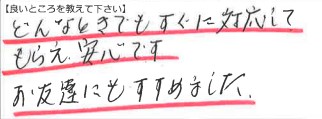 【良いところを教えて下さい】
どんなときでもすぐに対応して
もらえ安心です
お友達にもすすめました。